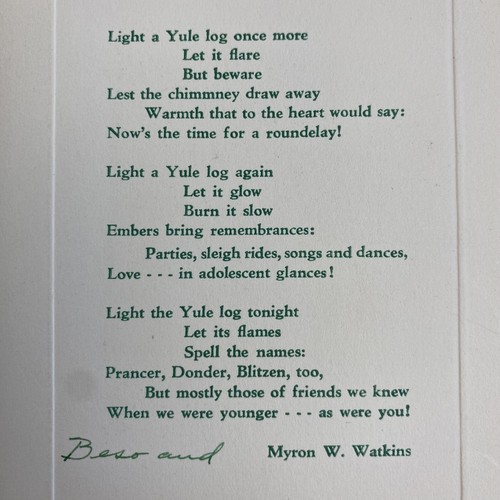 Light a Yule log once more
Let it flare
But beware
Lest the chimmney draw away
Warmth that to the heart would say:
Now's the time for a roundelay!
Light a Yule log again
Let it glow
Burn it slow
Embers bring remembrances:
Parties, sleigh rides, songs and dances,
Love - - - in adolescent glances!
Light the Yule log tonight
Let its flames
Spell the names:
Prancer, Donder, Blitzen, too,
But mostly those of friends we knew
When we were younger - - - as were you!
Beso and Myron W. Watkins